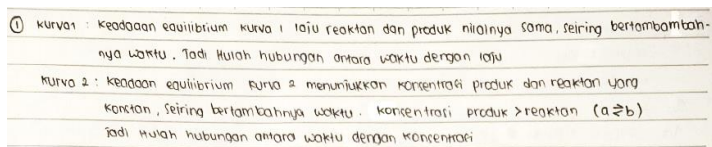 ① Kurva1 : Keadaan equilibrium kurva 1 laju reaktan dan produk nilainya sama, seiring bertambambah-
nya waktu. Jadi itulah hubungan antara waktu dengan laju
Kurva 2 : Keadaan equilibrium kurva 2 menunjukkan konsentrasi produk dan reaktan yang
konstan, seiring bertambahnya waktu. konsentrasi produk > reaktan (a⇌b)
jadi itulah hubungan antara waktu dengan konsentrasi